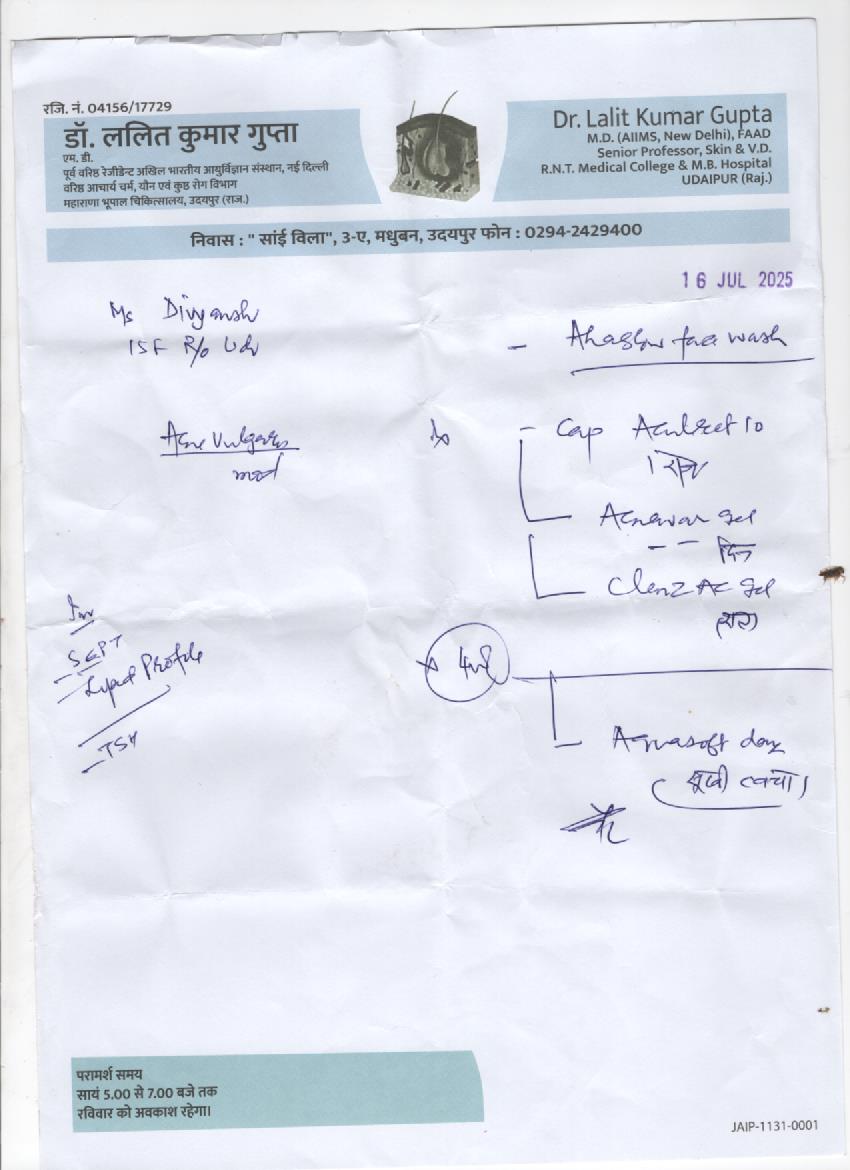 रजि. नं. 04156/17729
डॉ. ललित कुमार गुप्ता
एम. डी.
पूर्व वरिष्ठ रेजीडेन्ट अखिल भारतीय आयुर्विज्ञान संस्थान, नई दिल्ली
वरिष्ठ आचार्य चर्म, यौन एवं कुष्ठ रोग विभाग
महाराणा भूपाल चिकित्सालय, उदयपुर (राज.)
Dr. Lalit Kumar Gupta
M.D. (AIIMS, New Delhi), FAAD
Senior Professor, Skin & V.D.
R.N.T. Medical College & M.B. Hospital
UDAIPUR (Raj.)
निवास : " सांई विला", 3-ए, मधुबन, उदयपुर फोन : 0294-2429400
16 JUL 2025
Ms
R/o
face wash
Acne Vulgaris
mod
Cap 10
1
gel
दिन
Clenz AC gel
Inv
SGPT
Lipid Profile
TSH
Aquasoft
सूखी त्वचा
परामर्श समय
सायं 5.00 से 7.00 बजे तक
रविवार को अवकाश रहेगा।
JAIP-1131-0001